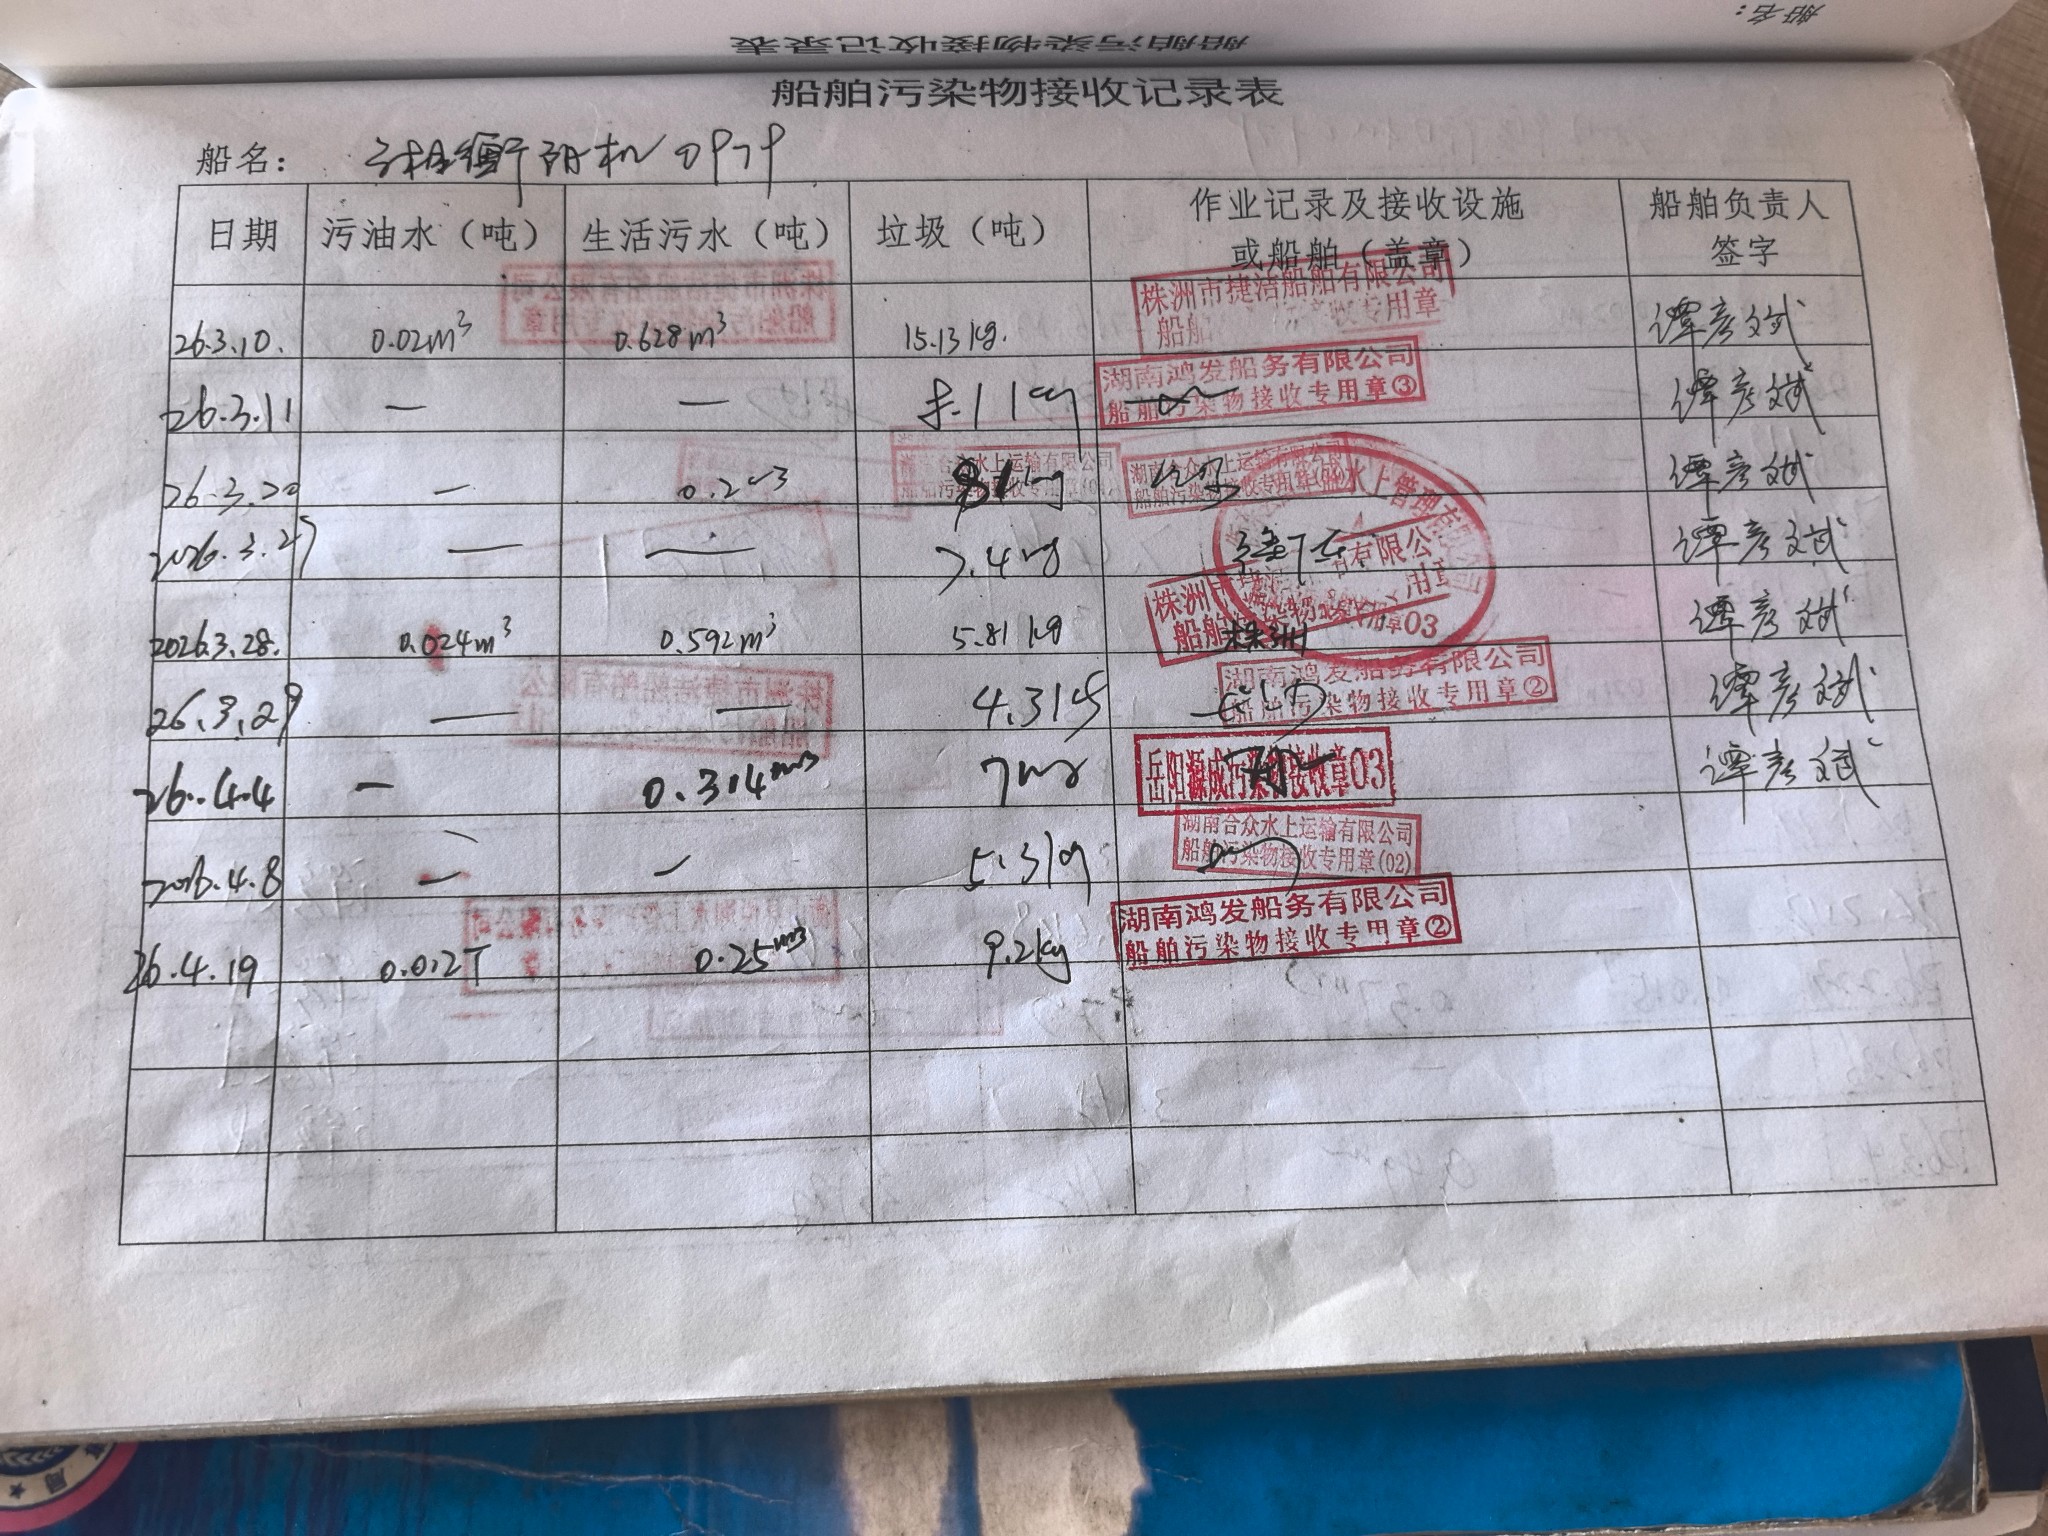 船舶污染物接收记录表
船名：
日期 污油水（吨） 生活污水（吨） 垃圾（吨） 作业记录及接收设施或船舶（盖章） 船舶负责人签字
26.3.10. 0.02m³ 0.628m³ 15.13kg. 株洲市捷洁船舶有限公司 船舶 接收专用章 谭彦斌
26.3.11 — — 湖南鸿发船务有限公司 船舶污染物接收专用章③ 谭彦斌
26.3.20 — 0.2m3 湖南合众水上运输有限公司 船舶污染物接收专用章 谭彦斌
2026.3.27 — — 7.4kg 水上管理有限公司 谭彦斌
2026.3.28. 0.024m³ 0.592m³ 5.81kg 株洲市 有限公 船舶 用章 03 株洲 谭彦斌
26.3.29 — — 湖南鸿发船务有限公司 船舶污染物接收专用章② 谭彦斌
26.4.4 — 0.314m3 岳阳源成污染物接收章03 谭彦斌
2026.4.8 — — 5.3kg 湖南合众水上运输有限公司 船舶污染物接收专用章(02)
26.4.19 0.012T 0.25m3 9.2kg 湖南鸿发船务有限公司 船舶污染物接收专用章②